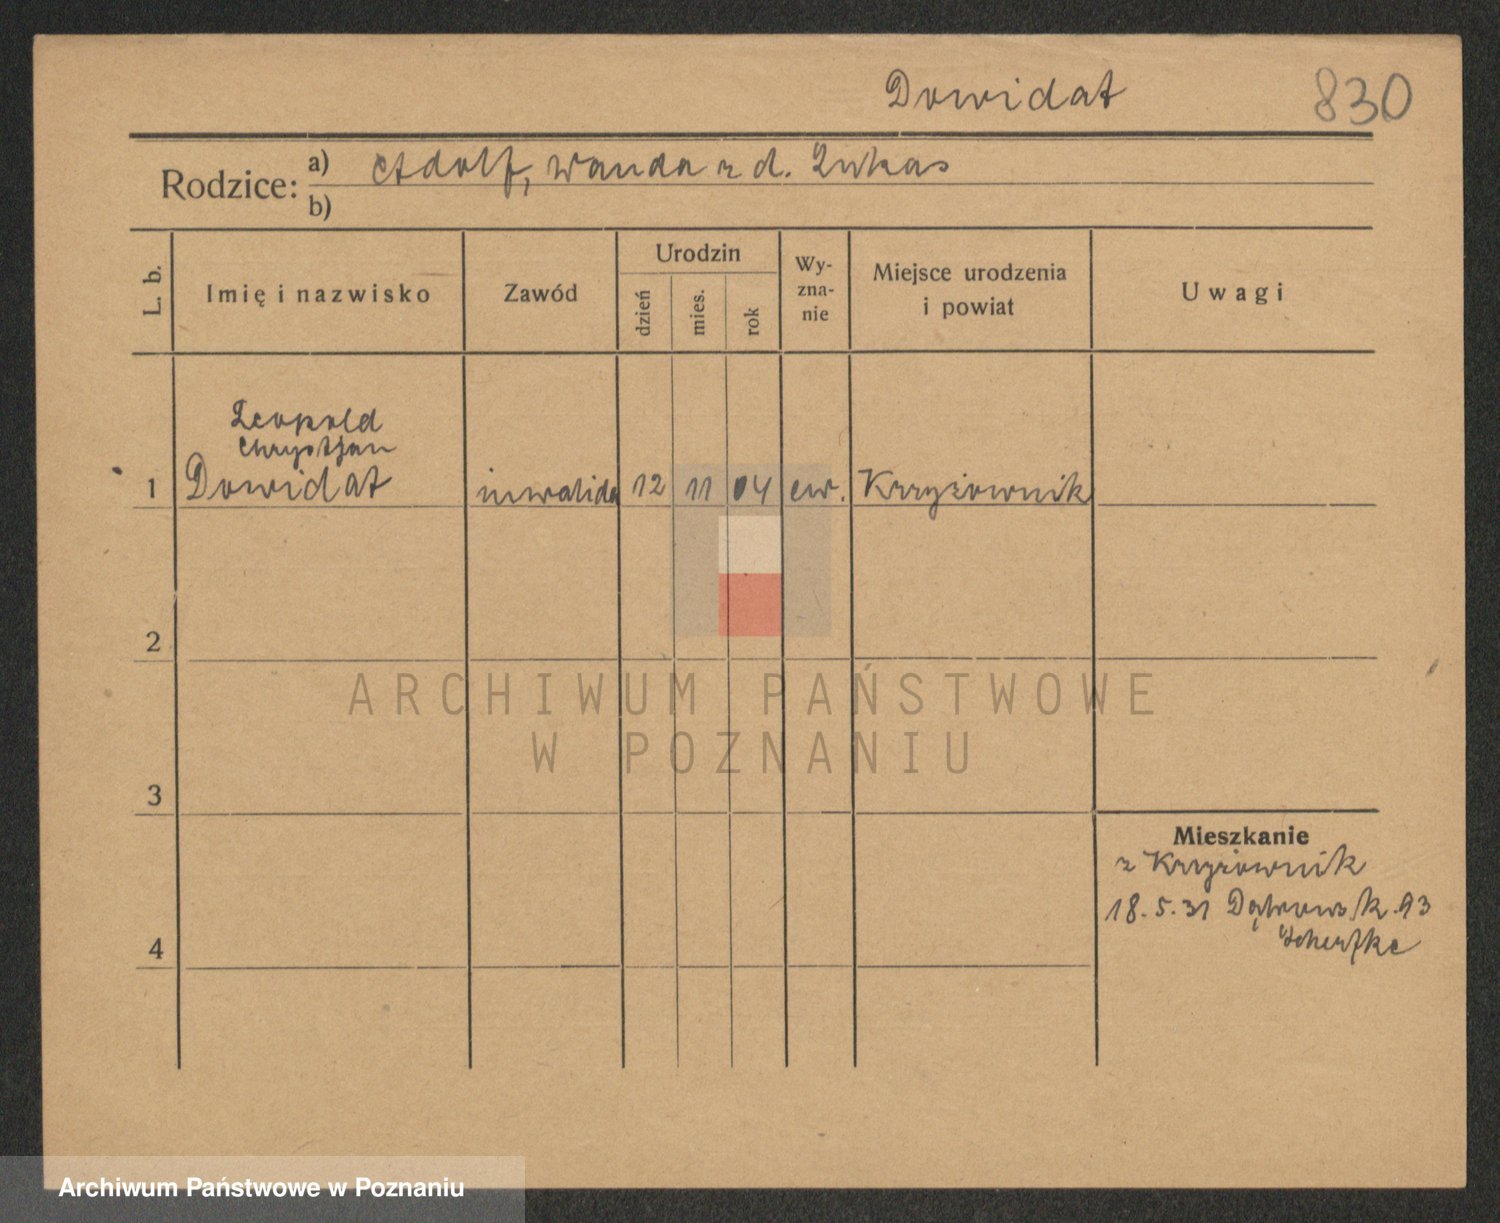 Dowidat 830
Rodzice: a) Adolf, Wanda z d. Lukas
b)
L. b. Imię i nazwisko Zawód Urodzin dzień mies. rok Wyznanie Miejsce urodzenia i powiat Uwagi
Leopold
Chrystjan
1 Dowidat inwalida 12 11 04 ew. Krzyżownik
2
ARCHIWUM PAŃSTWOWE
W POZNANIU
3
Mieszkanie
z Krzyżownik
18.5.31 Dąbrowsk. 93
4
Archiwum Państwowe w Poznaniu